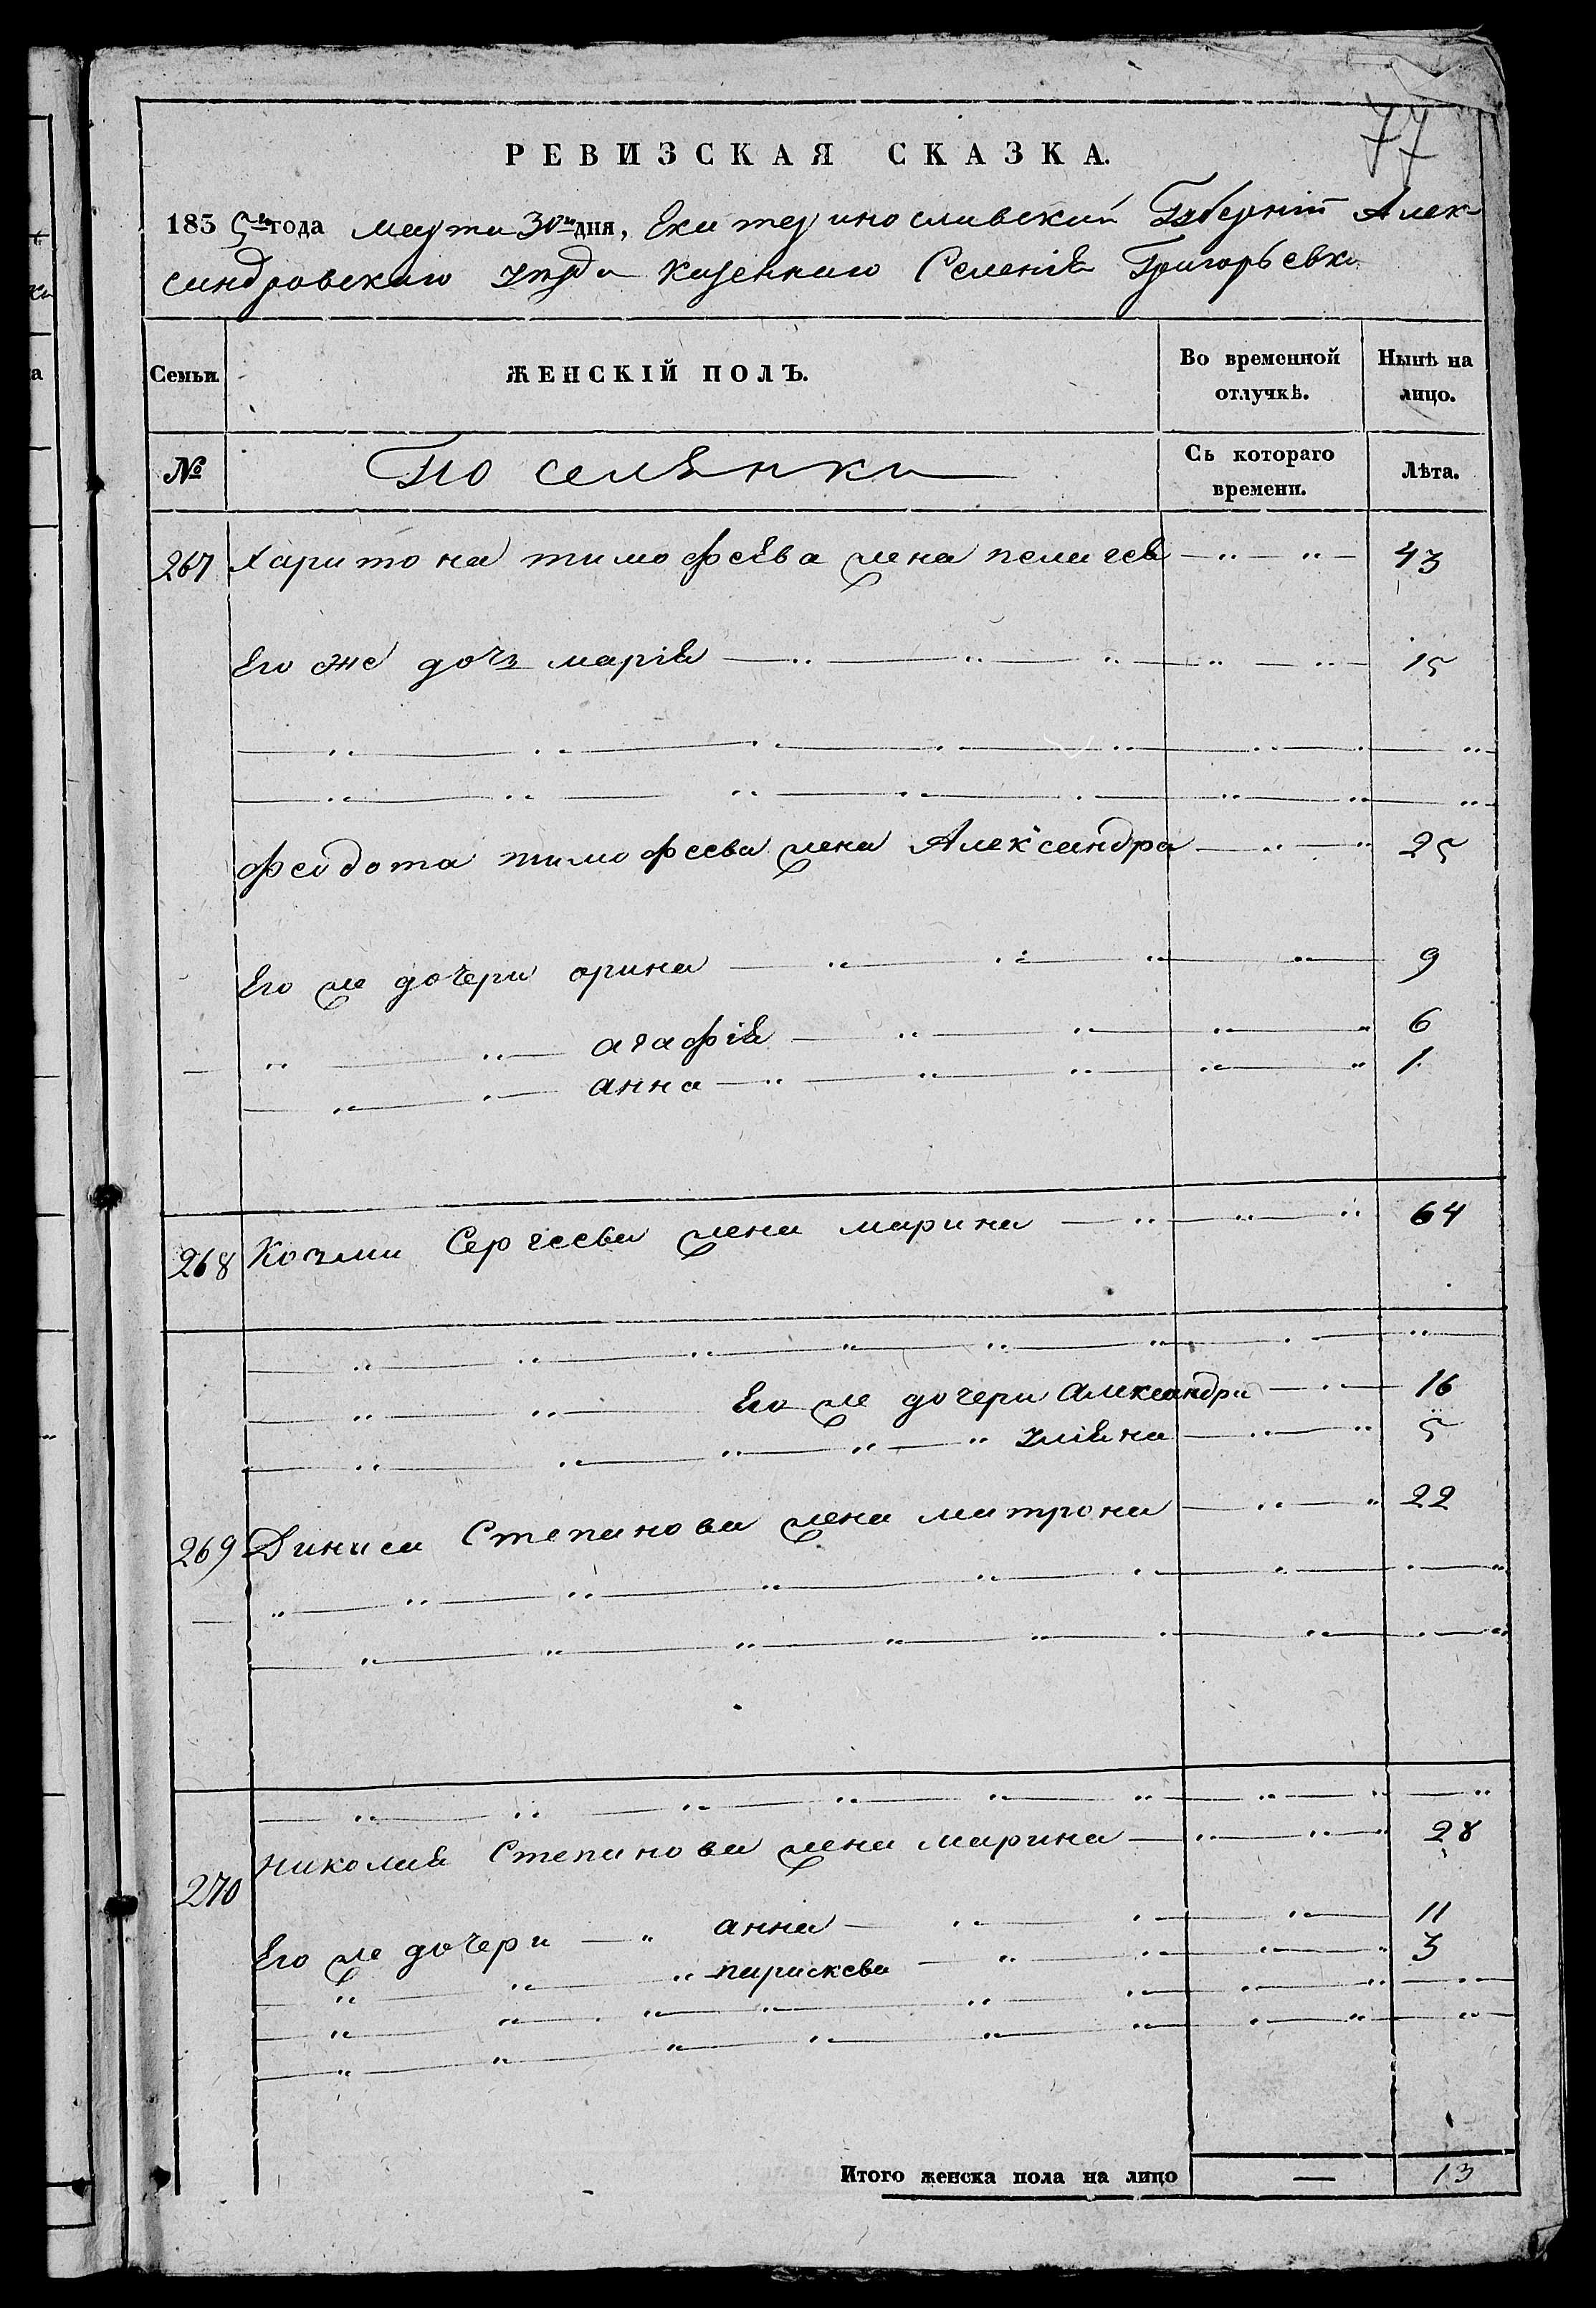 77
РЕВИЗСКАЯ СКАЗКА.
1835го года марта 30го дня, Екатеринославской Губерніи Алек-
сандровского уезда казенного Селенія Григорьевки
Семьи. ЖЕНСКІЙ ПОЛЪ. Во временной отлучкѣ. Нынѣ на лицо.
№ Поселянки Съ котораго времени. Лѣта.
267 Харитона тимофеева жена пелагея 43
Его же дочь марія 15
феодота тимофеева жена Александра 25
Его же дочери орина 9
агафія 6
анна 1
268 Козми Сергеева жена марина 64
Его же дочери александра 16
улияна 5
269 Диниса Степанова жена матрона 22
николая Степанова жена марина 28
270
Его же дочери анна 11
параскева 3
Итого женска пола на лицо — 13